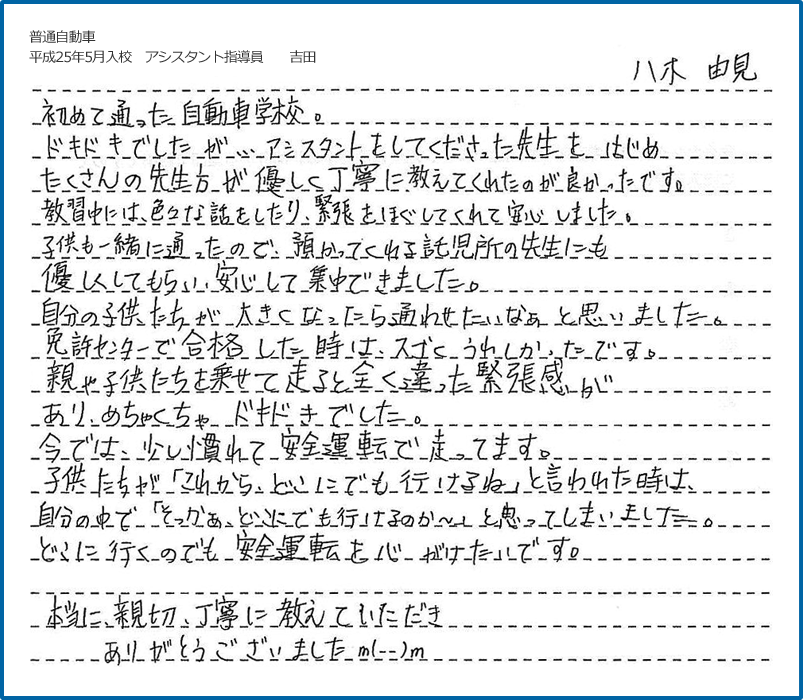 普通自動車
平成25年5月入校　アシスタント指導員　　吉田
八木　由見
初めて通った自動車学校。
ドキドキでしたが… アシスタントをしてくださった先生をはじめ
たくさんの先生方が優しく丁寧に教えてくれたのが良かったです。
教習中には、色々な話をしたり、緊張をほぐしてくれて安心しました。
子供も一緒に通ったので、預かってくれる託児所の先生にも
優しくしてもらい、安心して集中できました。
自分の子供たちが大きくなったら通わせたいなぁと思いました。
免許センターで合格した時は、スゴくうれしかったです。
親や子供たちを乗せて走ると全く違った緊張感が
あり、めちゃくちゃドキドキでした。
今では、少し慣れて安全運転で走ってます。
子供たちが「これから、どこにでも行けるね」と言われた時は、
自分の中で「そっかぁ、どこにでも行けるのか〜」と思ってしまいました。
どこに行くのでも安全運転を心がけたいです。
本当に、親切、丁寧に教えていただき
ありがとうございました m(--)m